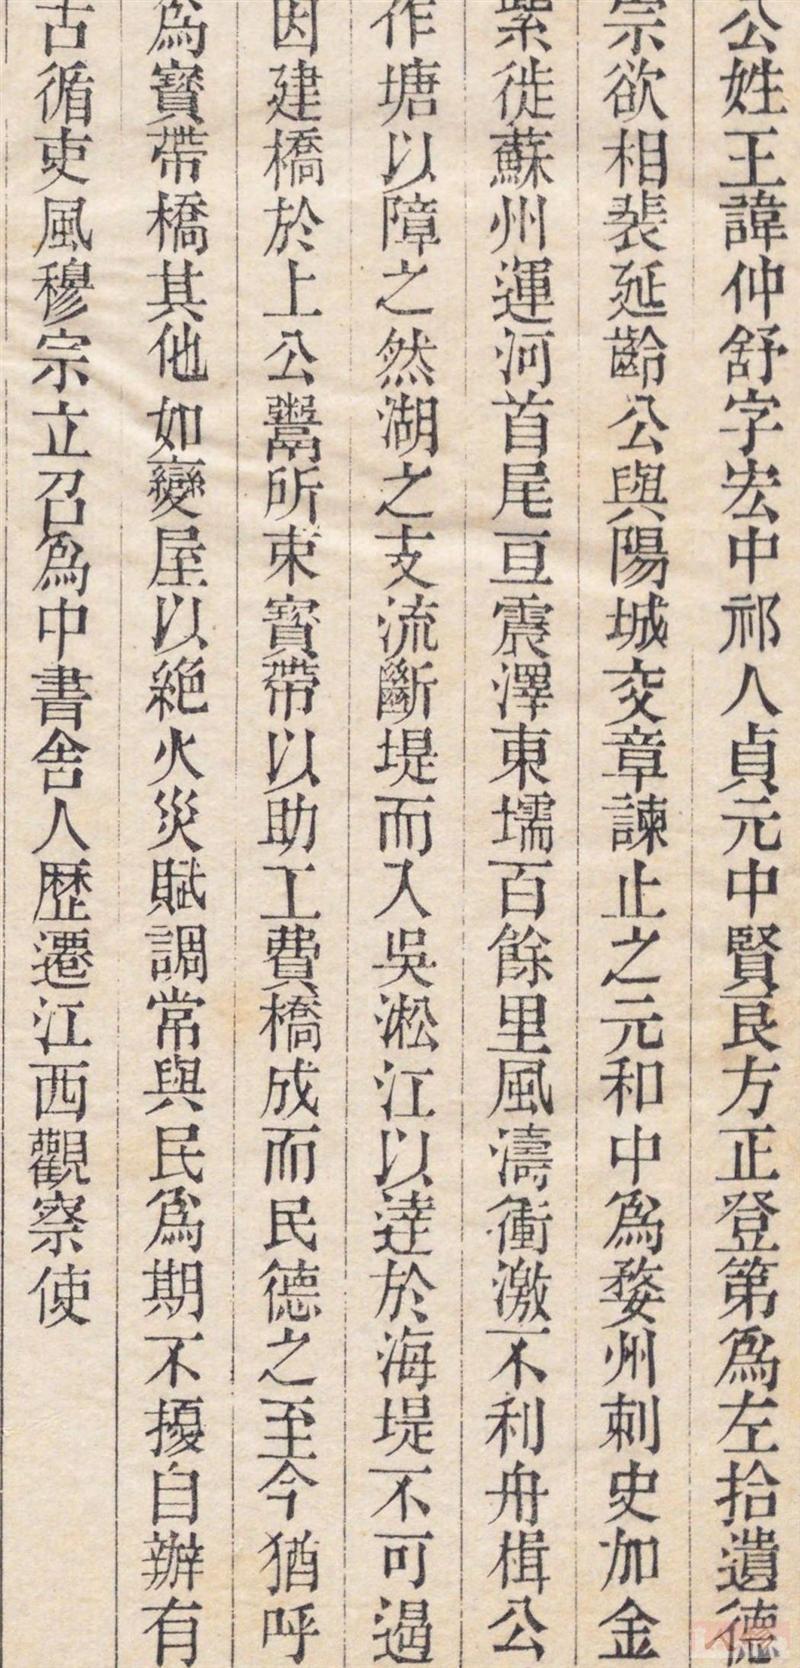 公姓王諱仲舒字宏中祁人貞元中賢良方正登第爲左拾遺德
宗欲相裴延齡公與陽城交章諫止之元和中爲婺州刺史加金
紫徙蘇州運河首尾亘震澤東壖百餘里風濤衝激不利舟楫公
作塘以障之然湖之支流斷堤而入吳淞江以達於海堤不可遏
因建橋於上公鬻所束寶帶以助工費橋成而民德之至今猶呼
爲寶帶橋其他如變屋以絕火災賦調常與民爲期不擾自辦有
古循吏風穆宗立召爲中書舍人歷遷江西觀察使